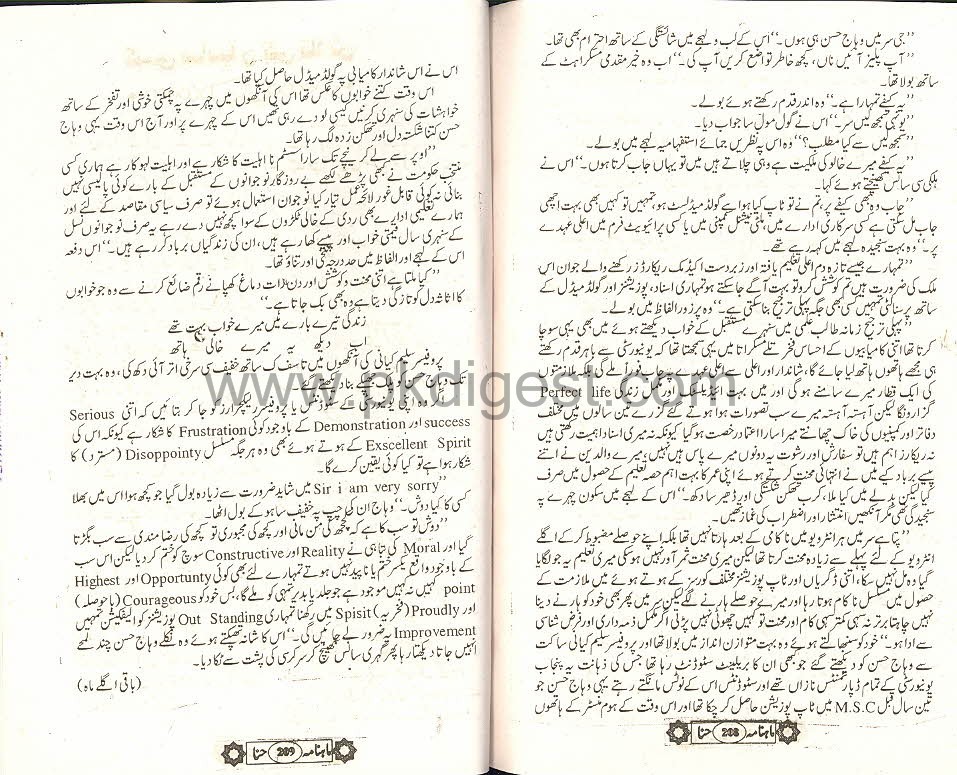 ’’جی سر میں وہاج حسن ہی ہوں۔‘‘ اس کے لب و لہجے میں شائستگی کے ساتھ احترام بھی تھا۔
’’آپ پلیز آئیں ناں، کچھ خاطر تواضع کریں آپ کی۔‘‘ اب وہ خیر مقدمی مسکراہٹ کے
ساتھ بولا تھا۔
’’یہ کیفے تمہارا ہے۔‘‘ وہ اندر قدم رکھتے ہوئے بولے۔
’’یونہی سمجھ لیں سر۔‘‘ اس نے گول مول سا جواب دیا۔
’’سمجھ لیں سے کیا مطلب؟‘‘ وہ اس پہ نظریں جمائے استفہامیہ لہجے میں بولے۔
’’یہ کیفے میرے خالو کی ملکیت ہے وہی چلاتے ہیں میں تو یہاں جاب کرتا ہوں۔‘‘ اس نے
ہلکی سی سانس کھینچتے ہوئے کہا۔
’’جاب وہ بھی کیفے پر، تم نے تو ٹاپ کیا ہوا ہے گولڈ میڈلسٹ ہو، تمہیں تو کہیں بھی بہت اچھی
جاب مل سکتی ہے کسی سرکاری ادارے میں، ملٹی نیشنل کمپنی میں یا کسی پرائیویٹ فرم میں اعلیٰ عہدے
پر۔‘‘ وہ بہت سنجیدہ لہجے میں کہہ رہے تھے۔
’’تمہارے جیسے تازہ دم اعلیٰ تعلیم یافتہ اور زبردست اکیڈمک ریکارڈز رکھنے والے جوان اس
ملک کی ضرورت ہیں تم کوشش کرو تو بہت آگے جا سکتے ہو تمہاری اسناد، پوزیشنز اور گولڈ میڈل کے
ساتھ پرسنالٹی تمہیں کسی بھی جگہ پہلی ترجیح بنا سکتی ہے۔‘‘ وہ پر زور الفاظ میں بولے۔
’’پہلی ترجیح زمانہ طالب علمی میں سنہرے مستقبل کے خواب دیکھتے ہوئے میں بھی یہی سوچا
کرتا تھا اتنی کامیابیوں کے احساس فخر تلے مسکراتا میں یہی سمجھتا تھا کہ یونیورسٹی سے باہر قدم رکھتے
ہی مجھے ہاتھوں ہاتھ لیا جائے گا، شاندار اور اعلیٰ سے اعلیٰ عہدے پر جاب فوراً ملے گی بلکہ ملازمتوں
کی ایک قطار میرے سامنے ہو گی اور میں بہت آئیڈیلسٹک اور اعلیٰ زندگی Perfect life
گزاروں گا لیکن آہستہ آہستہ میرے سب تصورات ہوا ہوتے گئے گزرے تین سالوں میں مختلف
دفاتر اور کمپنیوں کی خاک چھانتے میرا سارا اعتماد رخصت ہو گیا کیونکہ نہ میری اسناد اہمیت رکھتی ہیں
نہ ریکارڈز اہم ہیں تو سفارش اور رشوت یہ دونوں میرے پاس ہیں نہیں میرے والدین نے اتنے
پیسے برباد کیے میں نے انتہائی محنت کرتے ہوئے اپنی عمر کا بہت اہم حصہ تعلیم کے حصول میں صرف
کیا لیکن بدلے میں کیا ملا، کرب تھکن شکستگی اور ڈھیر سا دکھ۔‘‘ اس کے لہجے میں سکون چہرے پہ
سنجیدگی تھی مگر آنکھیں انتشار اور اضطراب کی غماز تھیں۔
’’پتا ہے سر میں ہر انٹرویو میں ناکامی کے بعد ہارتا نہیں تھا بلکہ اپنے حوصلے مضبوط کر کے اگلے
انٹرویو کے لئے پہلے سے زیادہ محنت کرتا تھا لیکن میری محنت ثمر آور نہیں ہو سکی میری تعلیم پہ جو لگایا
گیا وہ مل نہیں سکا، اتنی ڈگریاں اور ٹاپ پوزیشنز مختلف کورسز کے ہوتے ہوئے میں ملازمت کے
حصول میں مسلسل ناکام ہوتا رہا اور میرے حوصلے ہارنے لگے لیکن سر میں پھر بھی خود کو ہارنے دینا
نہیں چاہتا برتر نہ سہی کمتر ہی کام اور محنت تو نہیں چھوٹی نہیں پڑتی اگر مکمل ذمہ داری اور فرض شناسی
سے ادا ہو۔‘‘ خود کو سنبھالتے ہوئے وہ بہت متوازن انداز میں بولا تھا اور پروفیسر سلیم کیانی ساکت
سے وہاج حسن کو دیکھتے گئے جو کبھی ان کا بریلینٹ سٹوڈنٹ رہا تھا جس کی ذہانت پہ پنجاب
یونیورسٹی کے تمام ڈپارٹمنٹس نازاں تھے اور سٹوڈنٹس اس کے نوٹس مانگتے رہتے یہی وہاج حسن جو
تین سال قبل M.S.C میں ٹاپ پوزیشن حاصل کر چکا تھا اور اس وقت کے ہوم منسٹر کے ہاتھوں
ماہنامہ حنا 208
اس نے اس شاندار کامیابی پہ گولڈ میڈل حاصل کیا تھا۔
اس وقت کتنے خوابوں کا عکس تھا اس کی آنکھوں میں چہرے پہ چمکتی خوشی اور تفخر کے ساتھ
خواہشات کی سنہری کرنیں کیسی لو دے رہی تھیں اس کے چہرے پر اور آج اس وقت یہی وہاج
حسن کتنا شکستہ دل اور تھکن زدہ لگ رہا تھا۔
’’اوپر سے لے کر نیچے تک سارا سسٹم نا اہلیت کا شکار ہے اور اہلیت لہو کار ہے ہماری کسی
منتخب حکومت نے بھی پڑھے لکھے بے روزگار نوجوانوں کے مستقبل کے بارے کوئی پالیسی نہیں
بنائی نہ کوئی قابل غور لائحہ عمل تیار کیا نوجوان استعمال ہوئے تو صرف سیاسی مقاصد کے لئے اور
ہمارے تعلیمی ادارے بھی ردی کے خالی ٹکڑوں کے سوا کچھ نہیں دے رہے یہ صرف نوجوان نسل
کے سنہری سال قیمتی خواب اور پیسے کھا رہے ہیں، ان کی زندگیاں برباد کر رہے ہیں۔‘‘ اس دفعہ
اس کے لہجے اور الفاظ میں حد درجہ تلخی اور تناؤ تھا۔
’’کیا ملتا ہے اتنی محنت و کوشش اور دن رات دماغ کھپانے رقم ضائع کرنے سے وہ جو خوابوں
کا اثاثہ دل کو تازگی دیتا ہے وہ بھی بک جاتا ہے۔‘‘
زندگی تیرے بارے میں میرے خواب بہت تھے
اب دیکھ یہ میرے خالی ہاتھ
پروفیسر سلیم کیانی کی آنکھوں میں تاسف کے ساتھ خفیف سی سرخی اتر آئی دکھ کی، وہ بہت دیر
تک وہاج حسن کو پلک جھپکے بنا دیکھتے گئے۔
’’اگر وہ اپنی یونیورسٹی کے سٹوڈنٹس یا پروفیسر لیکچرارز کو جا کر بتائیں کہ اتنی Serious
success اور Demonstration کے باوجود کوئی Frustration کا شکار ہے کیونکہ اس کی
Exscellent Spirit کے ہوتے ہوئے بھی وہ ہر جگہ مسلسل Disoppointy (مسترد) کا
شکار ہوا ہے تو کیا کوئی یقین کرے گا۔
’’Sir i am very sorry میں شاید ضرورت سے زیادہ بول گیا جو کچھ ہوا اس میں بھلا
کسی کا کیا دوش۔‘‘ وہاج ان کی چپ پہ خفیف سا ہو کے بول اٹھا۔
’’دوش تو سب کا ہے کہ کچھ کی من مانی اور کچھ کی مجبوری تو کچھ کی رضا مندی سے سب بگڑتا
گیا اور Moral کی تباہی نے Reality اور Constructive سوچ کو ختم کر دیا لیکن اس سب
کے باوجود واقع یکسر ختم یا ناپید نہیں ہوتے تمہارے لئے بھی کوئی Opportunity اور Highest
point کہیں نہ کہیں موجود ہے جو جلد یا بدیر تمہی کو ملے گا، بس خود کو Courageous (با حوصلہ)
اور Proudly (فخریہ) Spisit میں رکھنا تمہاری Out Standing پوزیشنز کو افیکشن تمہیں
Improvement پہ ضرور لے جائیں گی۔‘‘ اس کا شانہ تھپکتے ہوئے وہ نکلے وہاج حسن چند لمحے
انہیں جاتا دیکھتا رہا پھر گہری سانس کھینچ کر سر کرسی کی پشت سے ٹکا دیا۔
(باقی اگلے ماہ)
ماہنامہ حنا 209
www.pkdigest.com